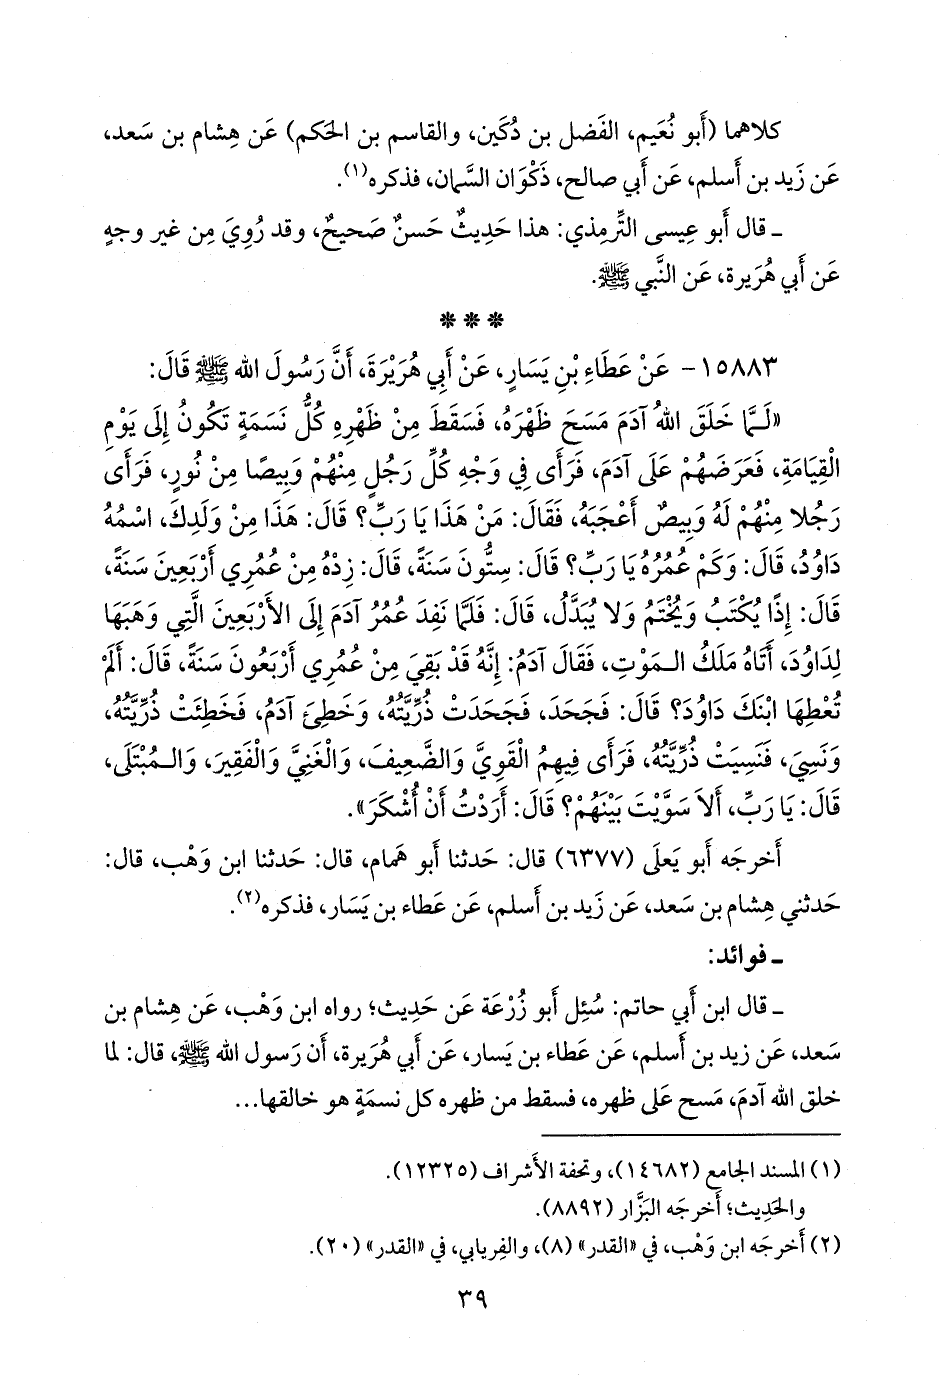 كلاهما (أَبو نُعَيم، الفَضل بن دُكَين، والقاسم بن الحَكم) عَن هِشام بن سَعد،
عَن زَيد بن أَسلم، عَن أَبي صالح، ذَكْوَان السَّمان، فذكره(١).
ـ قال أَبو عِيسى التِّرمِذي: هذا حَدِيثٌ حَسنٌ صَحيحٌ، وقد رُوِيَ مِن غير وجهٍ
عَن أَبي هُرَيرة، عَن النَّبي ﷺ.
* * *
١٥٨٨٣ - عَنْ عَطَاءِ بْنِ يَسَارٍ، عَنْ أَبِي هُرَيْرَةَ، أَنَّ رَسُولَ الله ﷺ قَالَ:
«لَـمَّا خَلَقَ اللهُ آدَمَ مَسَحَ ظَهْرَهُ، فَسَقَطَ مِنْ ظَهْرِهِ كُلُّ نَسَمَةٍ تَكُونُ إِلَى يَوْمِ
الْقِيَامَةِ، فَعَرَضَهُمْ عَلَى آدَمَ، فَرَأَى فِي وَجْهِ كُلِّ رَجُلٍ مِنْهُمْ وَبِيصًا مِنْ نُورٍ، فَرَأَى
رَجُلا مِنْهُمْ لَهُ وَبِيصٌ أَعْجَبَهُ، فَقَالَ: مَنْ هَذَا يَا رَبِّ؟ قَالَ: هَذَا مِنْ وَلَدِكَ، اسْمُهُ
دَاوُدُ، قَالَ: وَكَمْ عُمُرُهُ يَا رَبِّ؟ قَالَ: سِتُّونَ سَنَةً، قَالَ: زِدْهُ مِنْ عُمُرِي أَرْبَعِينَ سَنَةً،
قَالَ: إِذًا يُكْتَبُ وَيُخْتَمُ وَلا يُبَدَّلُ، قَالَ: فَلَمَّا نَفِدَ عُمُرُ آدَمَ إِلَى الأَرْبَعِينَ الَّتِي وَهَبَهَا
لِدَاوُدَ، أَتَاهُ مَلَكُ الـمَوْتِ، فَقَالَ آدَمُ: إِنَّهُ قَدْ بَقِيَ مِنْ عُمُرِي أَرْبَعُونَ سَنَةً، قَالَ: أَلَمْ
تُعْطِهَا ابْنَكَ دَاوُدَ؟ قَالَ: فَجَحَدَ، فَجَحَدَتْ ذُرِّيَّتُهُ، وَخَطِئَ آدَمُ، فَخَطِئَتْ ذُرِّيَّتُهُ،
وَنَسِيَ، فَنَسِيَتْ ذُرِّيَّتُهُ، فَرَأَى فِيهِمُ الْقَوِيَّ وَالضَّعِيفَ، وَالْغَنِيَّ وَالْفَقِيرَ، وَالـمُبْتَلَى،
قَالَ: يَا رَبِّ، أَلاَ سَوَّيْتَ بَيْنَهُمْ؟ قَالَ: أَرَدْتُ أَنْ أُشْكَرَ».
أَخرجَه أَبو يَعلَى (٦٣٧٧) قال: حَدثنا أَبو هَمام، قال: حَدثنا ابن وَهْب، قال:
حَدثني هِشام بن سَعد، عَن زَيد بن أَسلم، عَن عَطاء بن يَسَار، فذكره(٢).
ـ فوائد:
ـ قال ابن أَبي حاتم: سُئِل أَبو زُرْعَة عَن حَدِيث؛ رواه ابن وَهْب، عَن هِشام بن
سَعد، عَن زيد بن أَسلم، عَن عَطاء بن يَسار، عَن أَبي هُرَيرة، أَن رَسول الله ﷺ، قال: لما
خلق الله آدمَ، مَسح عَلى ظهره، فسقط من ظهره كل نسمَةٍ هو خالقها...
(١) المسند الجامع (١٤٦٨٢)، وتحفة الأَشراف (١٢٣٢٥).
والحَدِيث؛ أَخرجَه البَزَّار (٨٨٩٢).
(٢) أَخرجَه ابن وَهْب، في «القدر» (٨)، والفِريابي، في «القدر» (٢٠).
٣٩